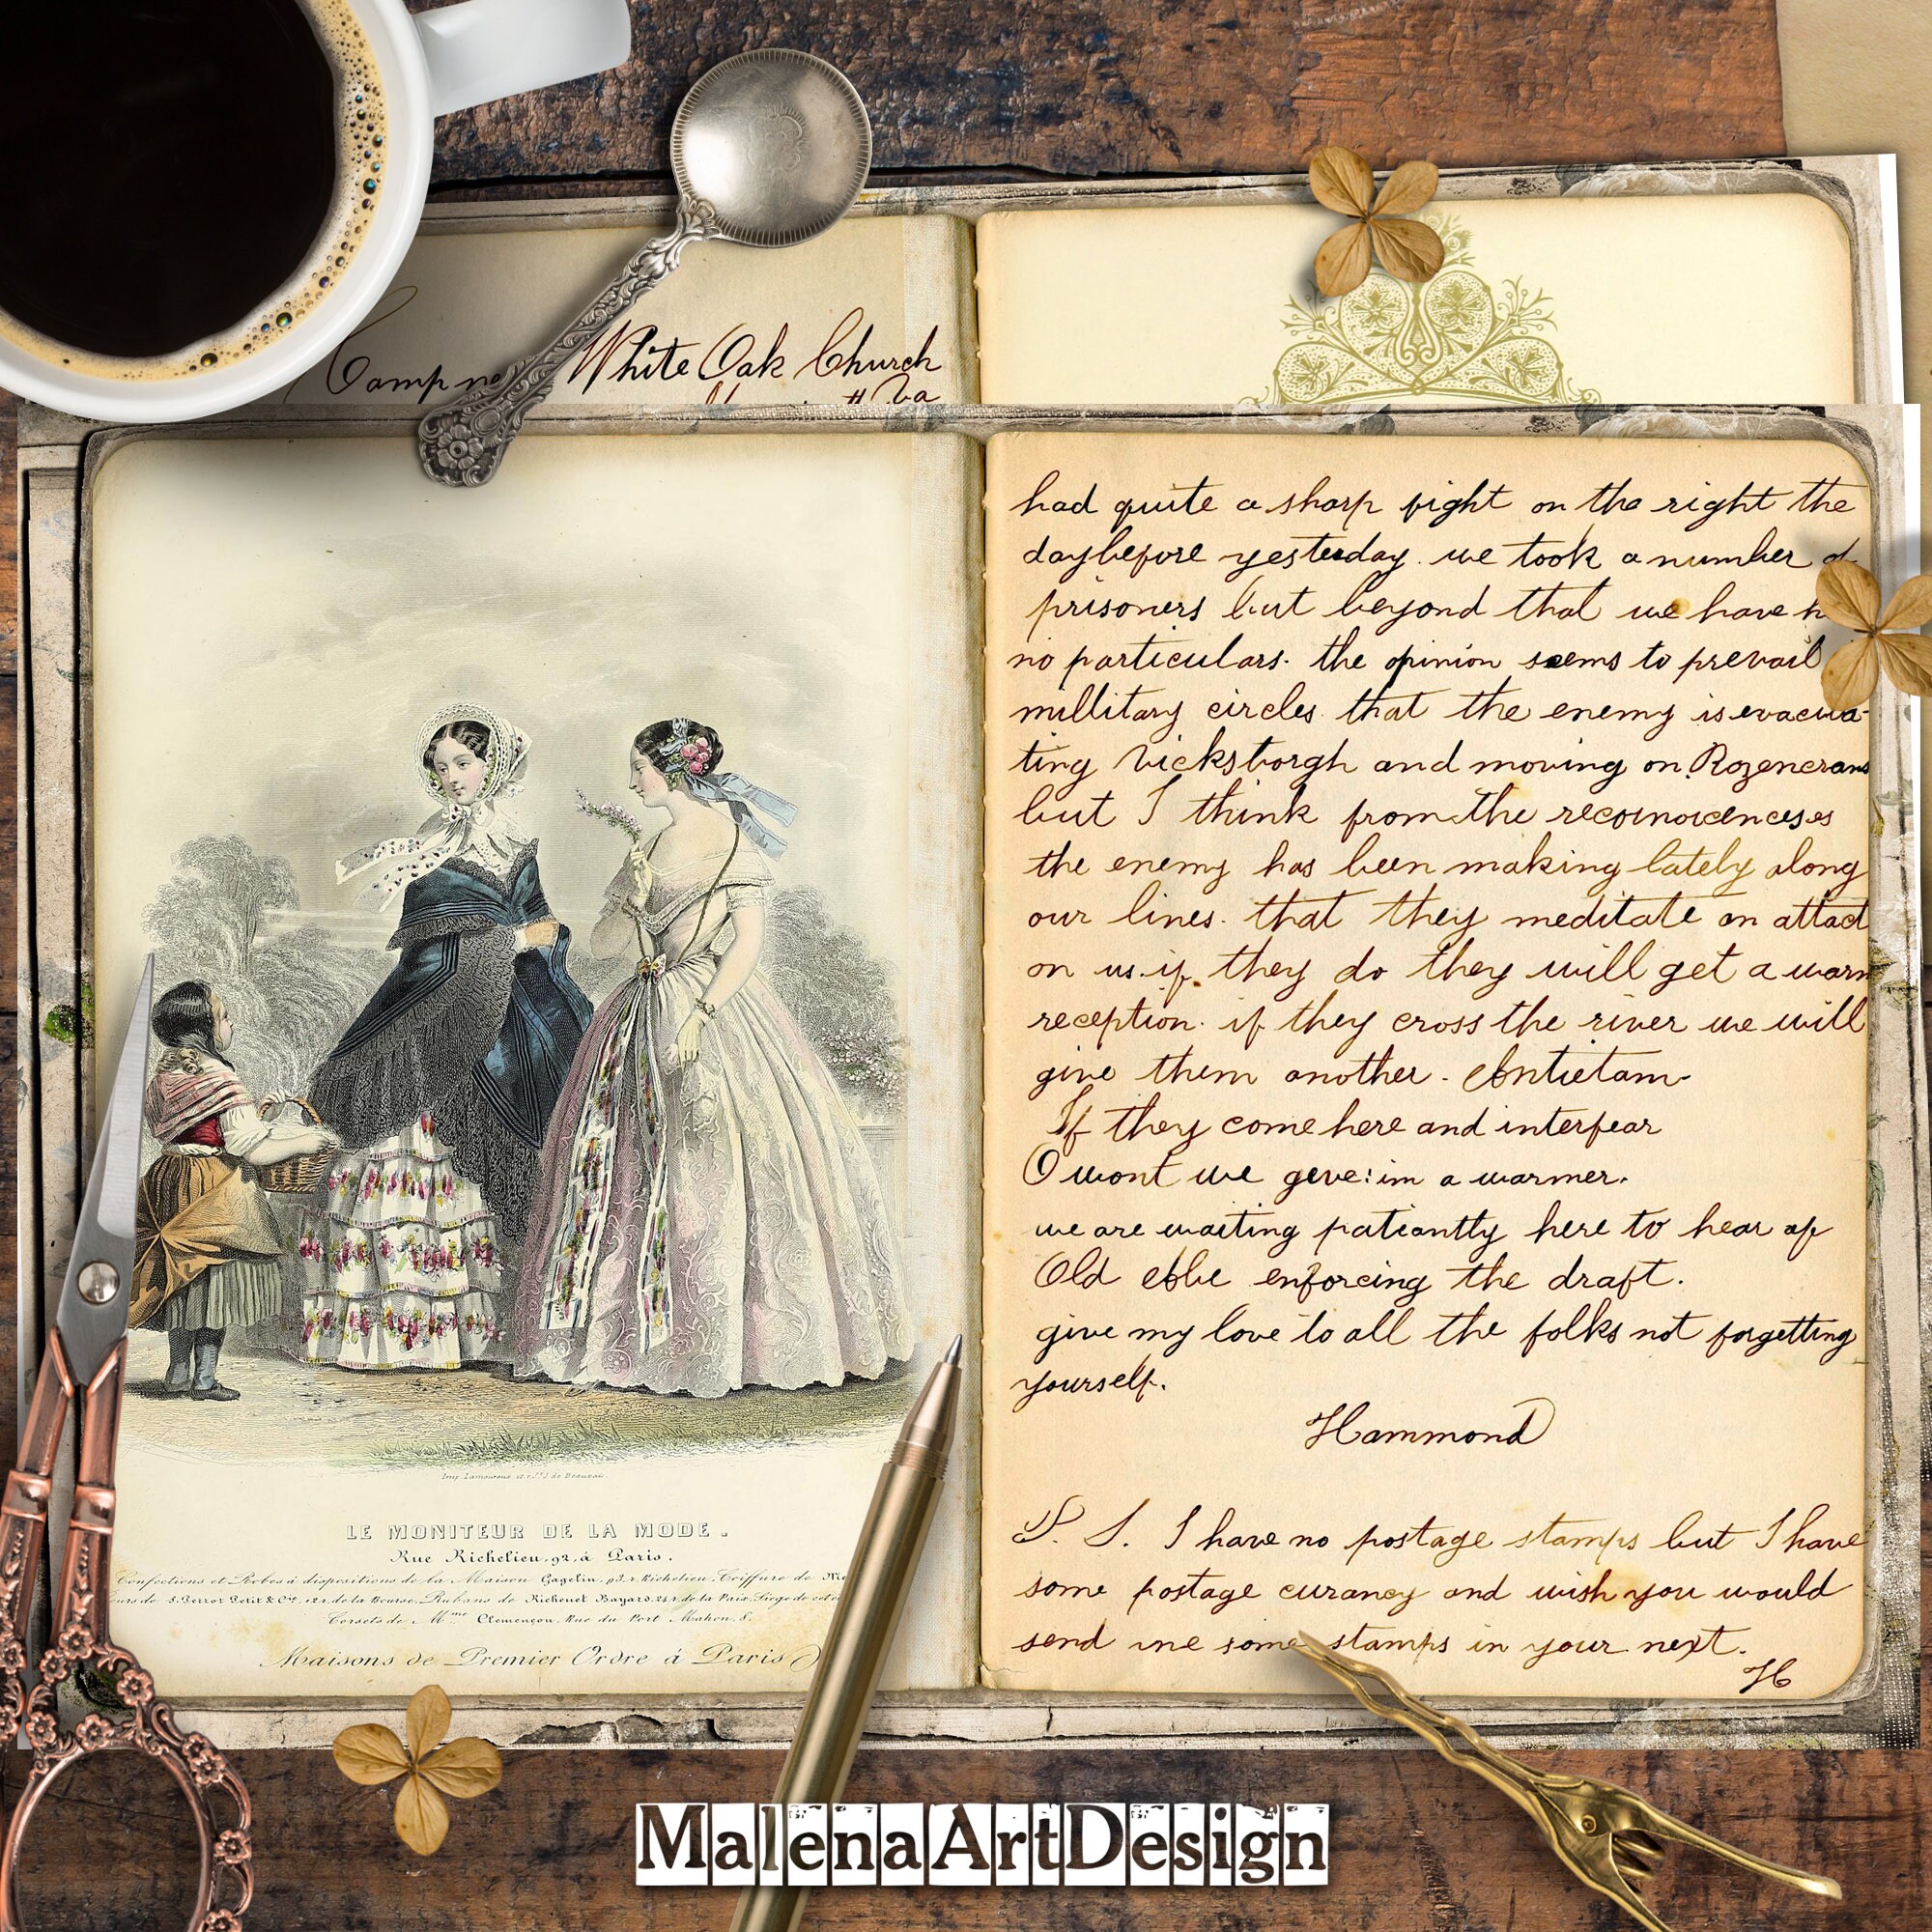 Camp White Oak Church
Va
had quite a sharp fight on the right the
day before yesterday. we took a number of
prisoners but beyond that we have
no particulars. the opinion seems to prevail
millitary circles that the enemy is evacua-
ting Vicksborgh and moving on Rozencrans
but I think from the
the enemy has been making lately along
our lines. that they meditate an attact
on us. if they do they will get a warm
reception. if they cross the river we will
give them another. Antietam-
If they come here and interfear
O wont we geve: im a warmer.
we are waiting patiantly here to hear of
Old Abe enforcing the draft.
give my love to all the folks not forgetting
yourself.
Hammond
P. S. I have no postage stamps but I have
some postage curancy and wish you would
send me some stamps in your next.
H
LE MONITEUR DE LA MODE.
Rue Richelieu, 92, à Paris.
Confections et Robes à dispositions de la Maison Gagelin, r. Richelieu, Coiffure de
de la Bourse, Rubans de Richenet Bayard de la Paix, Siège de
Corsets de Mme Clemençon, Rue du Port Mahon, 8.
Maisons de Premier Ordre à Paris
MalenaArtDesign